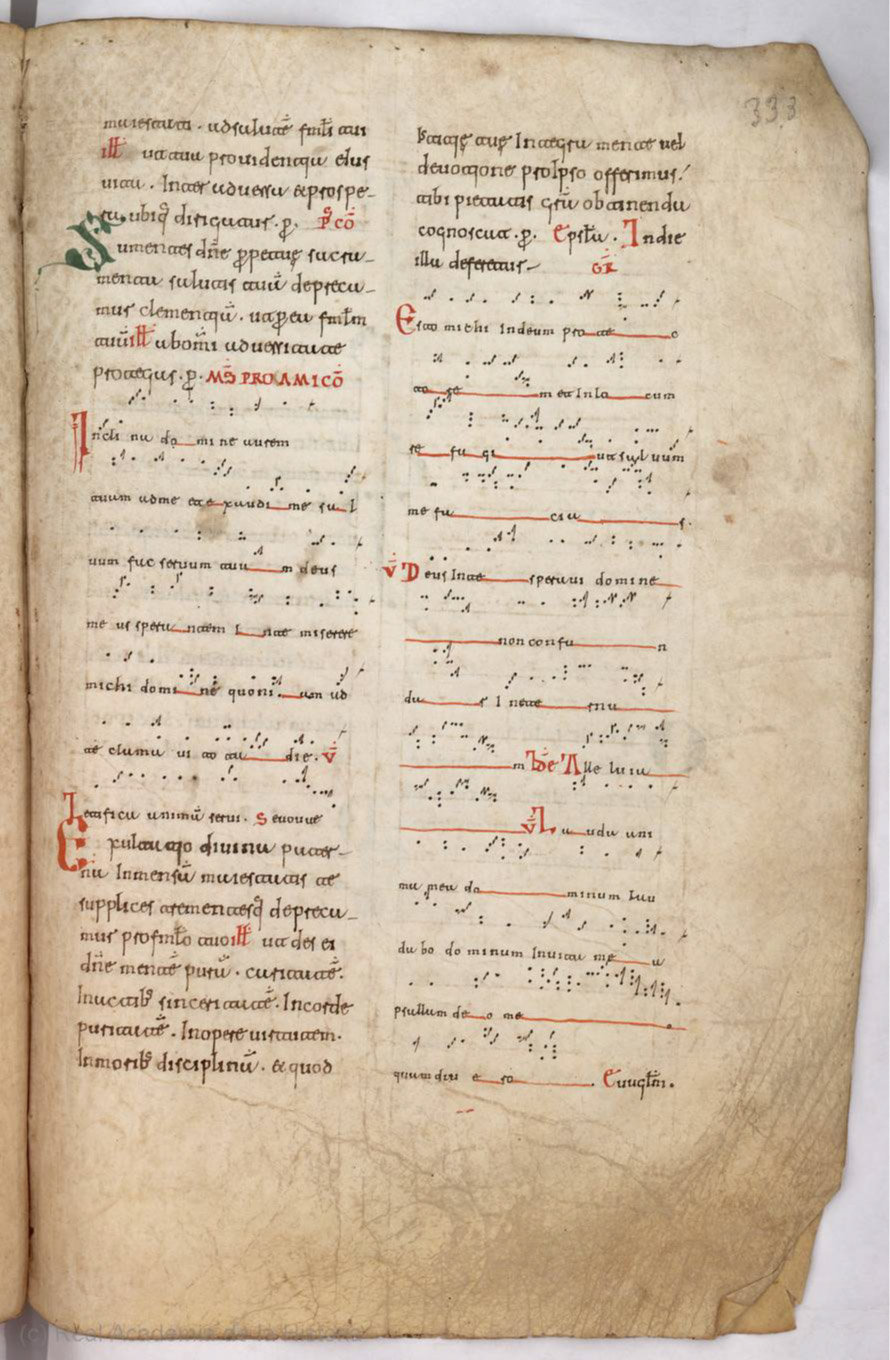 333
maiestatis. ad saluatē fmłi tui
iłł uita tua prouidentia eius
uiam. Inter aduersa et prospe-
ra ubiq; dirigatur. p̱. P̱ cō
Sumentes dñe p̱petue sacra-
menta salutis tuā depreca-
mus clementiā. ut p̱ ea fmłm
tuū iłł ab omi aduersitate
protegas. p̱. M̄S PRO AMICŌ
Incli na do mi ne aurem
tuam ad me et e xaudi me sal
uum fac seruum tuu m deus
me us spera ntem I n te miserere
michi domi ne quoni am ad
te clamaui to ta die. V̄
Letifica animā serui. Seuouae
Exultatio diuina pater-
na Inmensā maiestatis te
supplices trementesq̄ depreca-
mus pro fmło tuo iłł ut des ei
dñe mentē purā. caritatē.
In actib; sinceritatē. In corde
puritatē. In opere uirtutem.
In morib; disciplinā. et quod
iustitię tuę Integra mente uel
deuotione pro Ipso offerimus.
tibi pietatis grā obtinendu
cognoscat. p̱. Epsła. In die
illa deferetur. GR
Esto michi In deum pro te c
to re m et In lo cum
re fu gi ut saluum
me fa cia s.
V̄ Deus In te speraui domine
non confu n
da r I n ete rnu
m Ṽbẽ Alle luia
V̄ Lauda ani
ma mea do minum Lau
dabo do minum In uita me a
psallum de o me o
quamdiu e ro. Euuglm̄.
(c) Real Academia de la Historia